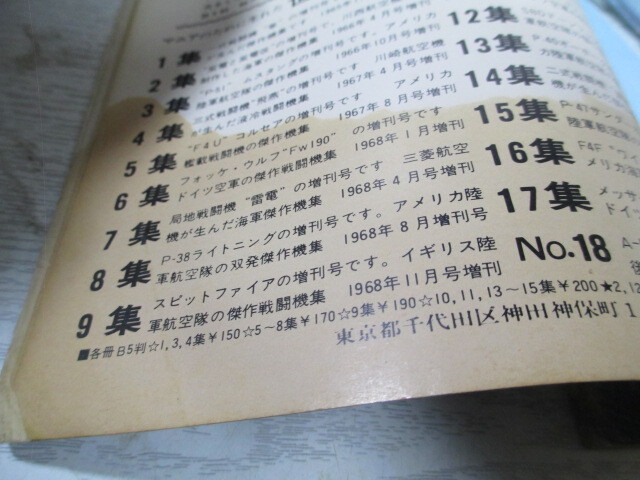 1集
2集
制作した海軍の傑作機集 1966年4月号増刊
"P-51" ムスタングの増刊号です アメリカ
3集
陸軍航空隊の傑作機集 1966年10月号増刊
三式戦闘機"飛燕"の増刊号です 川崎航空機
4集
が生んだ液冷戦闘機集 1967年4月号増刊
"F4U" コルセアの増刊号です アメリカ
5集
艦載戦闘機の傑作機集 1967年8月号増刊
フォッケ・ウルフ"Fw190" の増刊号です
6集
ドイツ空軍の傑作戦闘機集 1968年1月増刊
局地戦闘機 "雷電" の増刊号です 三菱航空
7集
機が生んだ海軍傑作機集 1968年4月号増刊
P-38ライトニングの増刊号です。アメリカ陸
8集
軍航空隊の双発傑作機集 1968年8月増刊号
スピットファイアの増刊号です。イギリス陸
9集
軍航空隊の傑作戦闘機集 1968年11月号増刊
■各冊B5判☆1,3,4集¥150☆5〜8集¥170☆9集¥190☆10,11,13〜15集¥200★2,12
東京都千代田区神田神保町1
12集
13集
14集
二式戦闘
機が生んだ
15集
P-47サン
陸軍航空隊
16集
F4F "ワ
メリカ海
17集
メッサ
ドイ
No.18
A-